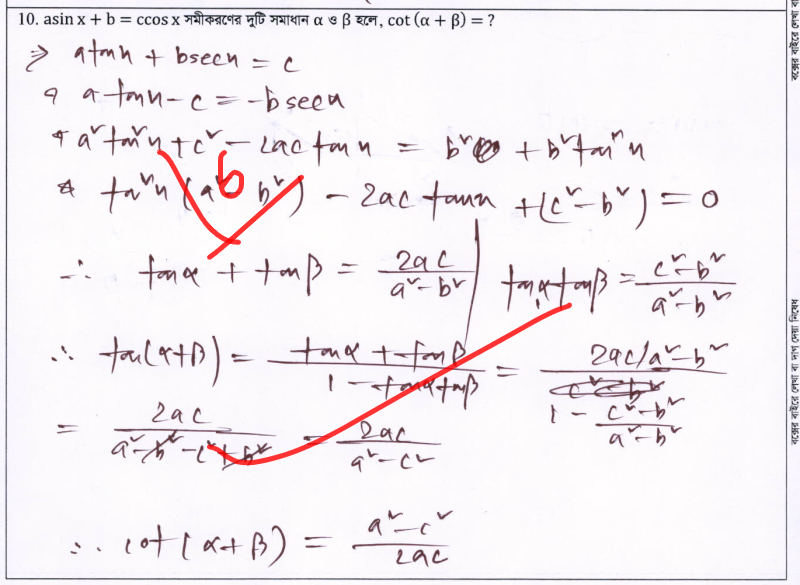 10. asin x + b = ccos x সমীকরণের দুটি সমাধান α ও β হলে, cot (α + β) = ?
⇒ a tan x + b sec x = c
a tan x - c = -b sec x
a² tan² x + c² - 2ac tan x = b² + b² tan² x
tan² x (a² - b²) - 2ac tan x + (c² - b²) = 0
6
∴ tan α + tan β = 2ac / (a² - b²) | tan α tan β = (c² - b²) / (a² - b²)
∴ tan(α+β) = (tan α + tan β) / (1 - tan α tan β) = (2ac / a² - b²) / (1 - (c² - b²) / (a² - b²))
= 2ac / (a² - b² - c² + b²) = 2ac / (a² - c²)
∴ cot(α+β) = (a² - c²) / 2ac